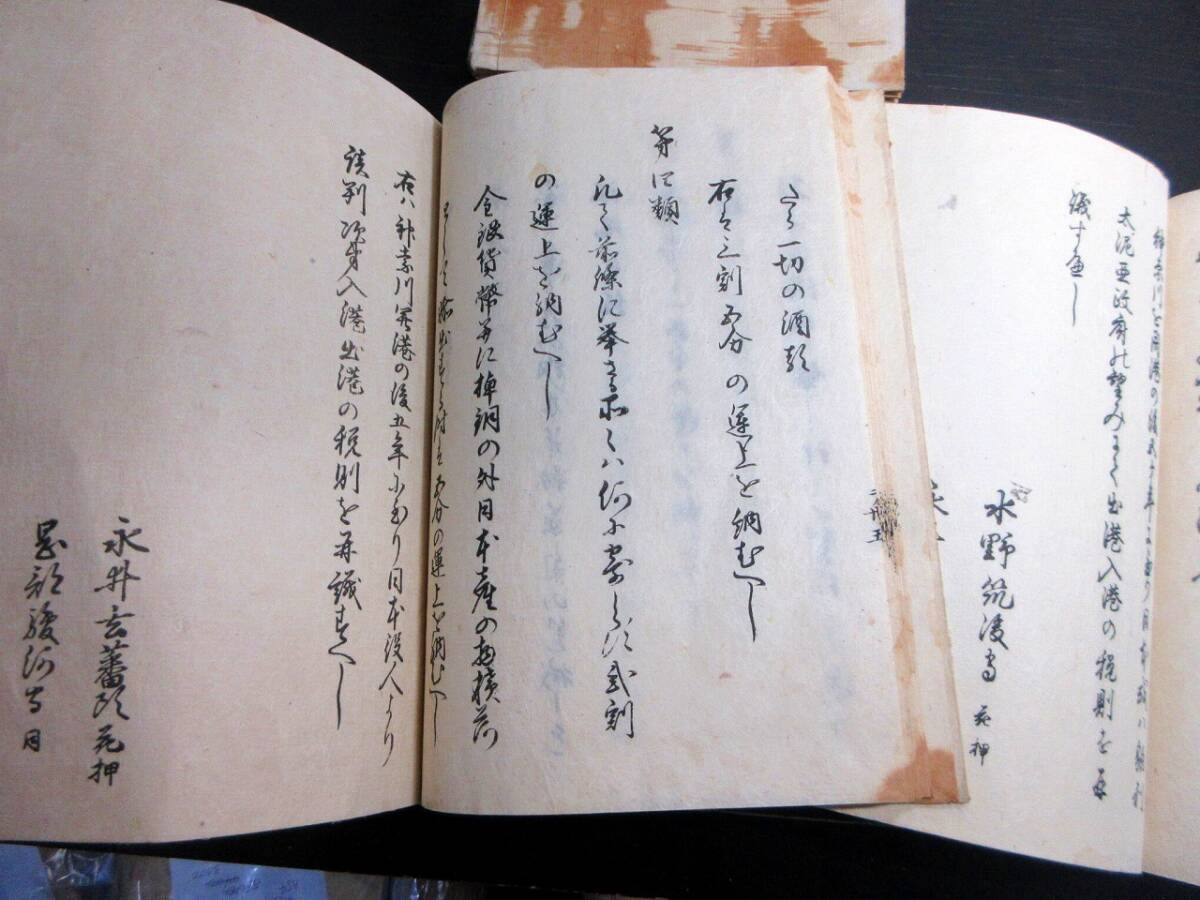 神奈川を開港の後
太泥亜政府の望みまて出港入港の税則を再
議すへし
水野筑後守 花押
たる一切の酒類
右は三割五分の運上を納むへし
第四類
凡て前條に挙さる品々ハ何に寄らす弐割
の運上を納むへし
金銀貨幣并に棹銅の外日本産の物積荷
として輸出する時は五分の運上を納むへし
右ハ神奈川開港の後五年に至り日本役人より
談判次第入港出港の税則を再議すへし
永井玄蕃頭 花押
岡部駿河守 同